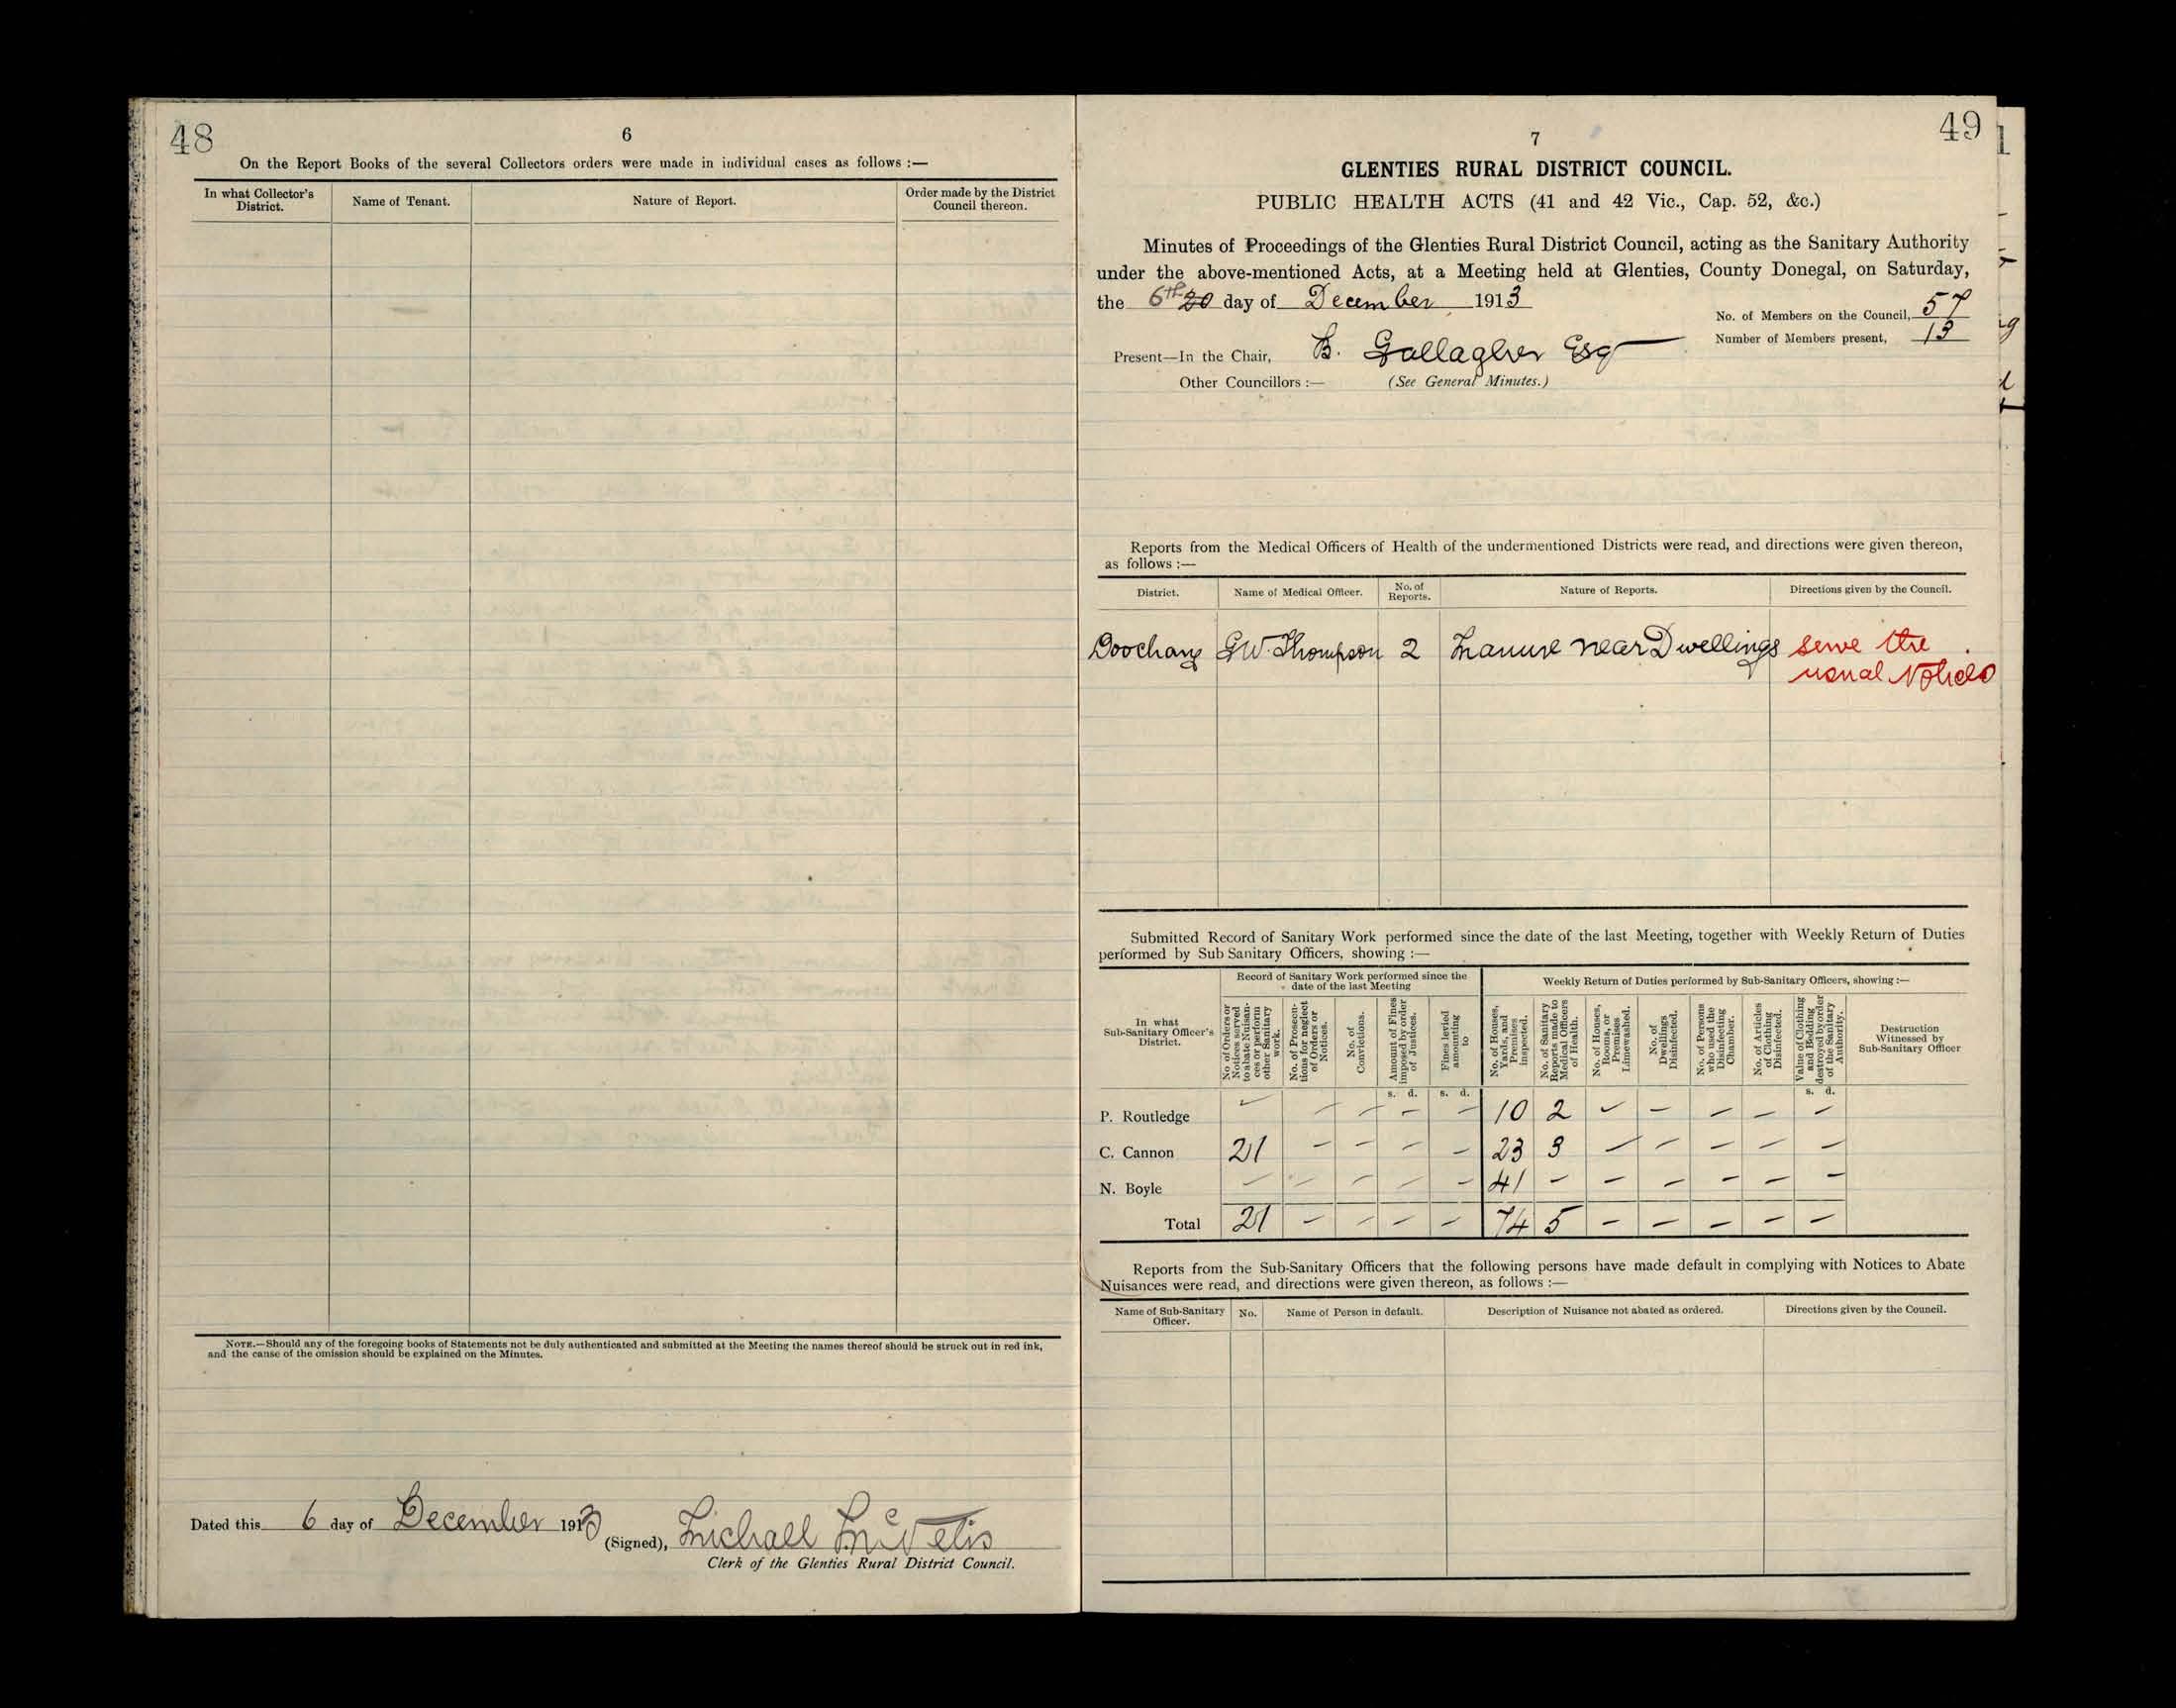 48
6
On the Report Books of the several Collectors orders were made in individual cases as follows :—
In what Collector's District.
Name of Tenant.
Nature of Report.
Order made by the District Council thereon.
NOTE.—Should any of the foregoing books of Statements not be duly authenticated and submitted at the Meeting the names thereof should be struck out in red ink,
and the cause of the omission should be explained on the Minutes.
Dated this 6 day of December 1913
(Signed), Michael McNelis
Clerk of the Glenties Rural District Council.
49
7
GLENTIES RURAL DISTRICT COUNCIL.
PUBLIC HEALTH ACTS (41 and 42 Vic., Cap. 52, &c.)
Minutes of Proceedings of the Glenties Rural District Council, acting as the Sanitary Authority
under the above-mentioned Acts, at a Meeting held at Glenties, County Donegal, on Saturday,
the 6th 20 day of December 1913
No. of Members on the Council, 57
Number of Members present, 13
Present—In the Chair, B. Gallagher Esq
Other Councillors :— (See General Minutes.)
Reports from the Medical Officers of Health of the undermentioned Districts were read, and directions were given thereon,
as follows :—
District.
Name of Medical Officer.
No. of Reports.
Nature of Reports.
Directions given by the Council.
Doochary GW. Thompson 2 Manure near Dwellings serve the
usual Notices
Submitted Record of Sanitary Work performed since the date of the last Meeting, together with Weekly Return of Duties
performed by Sub Sanitary Officers, showing :—
In what Sub-Sanitary Officer's District.
Record of Sanitary Work performed since the date of the last Meeting
Weekly Return of Duties performed by Sub-Sanitary Officers, showing :—
No of Orders or Notices served to abate Nuisances or perform other Sanitary work.
No. of Prosecutions for neglect of Orders or Notices.
No. of Convictions.
Amount of Fines imposed by order of Justices.
Fines levied amounting to
No. of Houses, Yards, and Premises inspected.
No. of Sanitary Reports made to Medical Officers of Health.
No. of Houses, Rooms, or Premises Limewashed.
No. of Dwellings Disinfected.
No. of Persons who used the Disinfecting Chamber.
No. of Articles of Clothing Disinfected.
Value of Clothing and Bedding destroyed by order of the Sanitary Authority.
Destruction Witnessed by Sub-Sanitary Officer
s. d. s. d. s. d.
P. Routledge — — — — — 10 2 — — — — —
C. Cannon 21 — — — — 23 3 — — — — —
N. Boyle — — — — — 41 — — — — — —
Total 21 — — — — 74 5 — — — — —
Reports from the Sub-Sanitary Officers that the following persons have made default in complying with Notices to Abate
Nuisances were read, and directions were given thereon, as follows :—
Name of Sub-Sanitary Officer.
No.
Name of Person in default.
Description of Nuisance not abated as ordered.
Directions given by the Council.